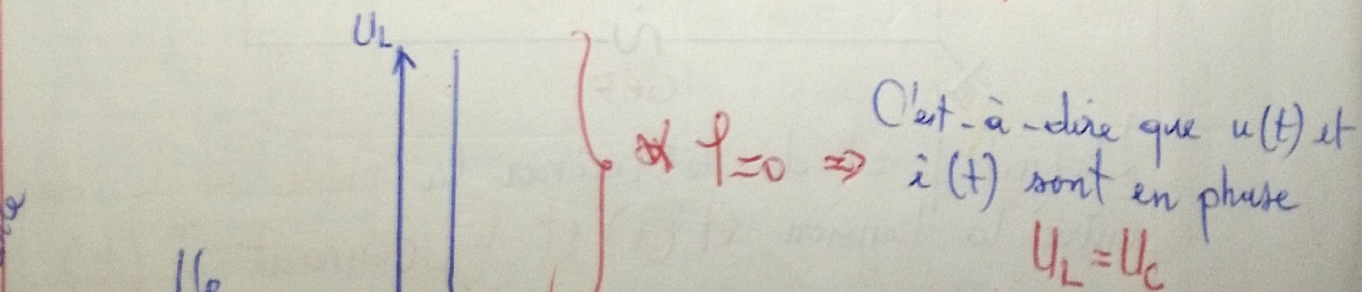 UL
C'est-à-dire que u(t) et
φ=0 ⇒ i(t) sont en phase
UL = UC